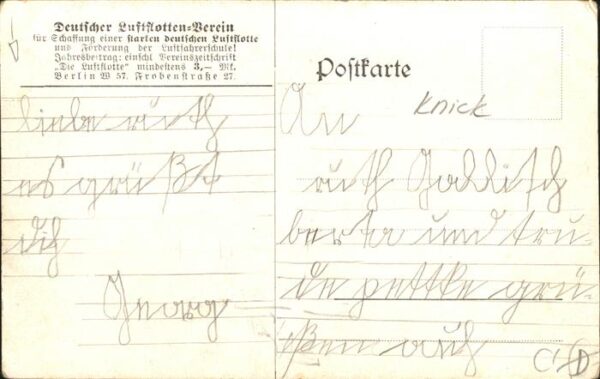 Deutscher Luftflotten-Verein
für Schaffung einer starken deutschen Luftflotte
und Förderung der Luftfahrerschule!
Jahresbeitrag: einschl Vereinszeitschrift
"Die Luftflotte" mindestens 3,— Mk.
Berlin W 57, Frobenstraße 27.
liebe ruth
es grüßt
dich
Georg
Postkarte
Knick
An
ruth
berta und tru-
de pettke grü-
ßen auch